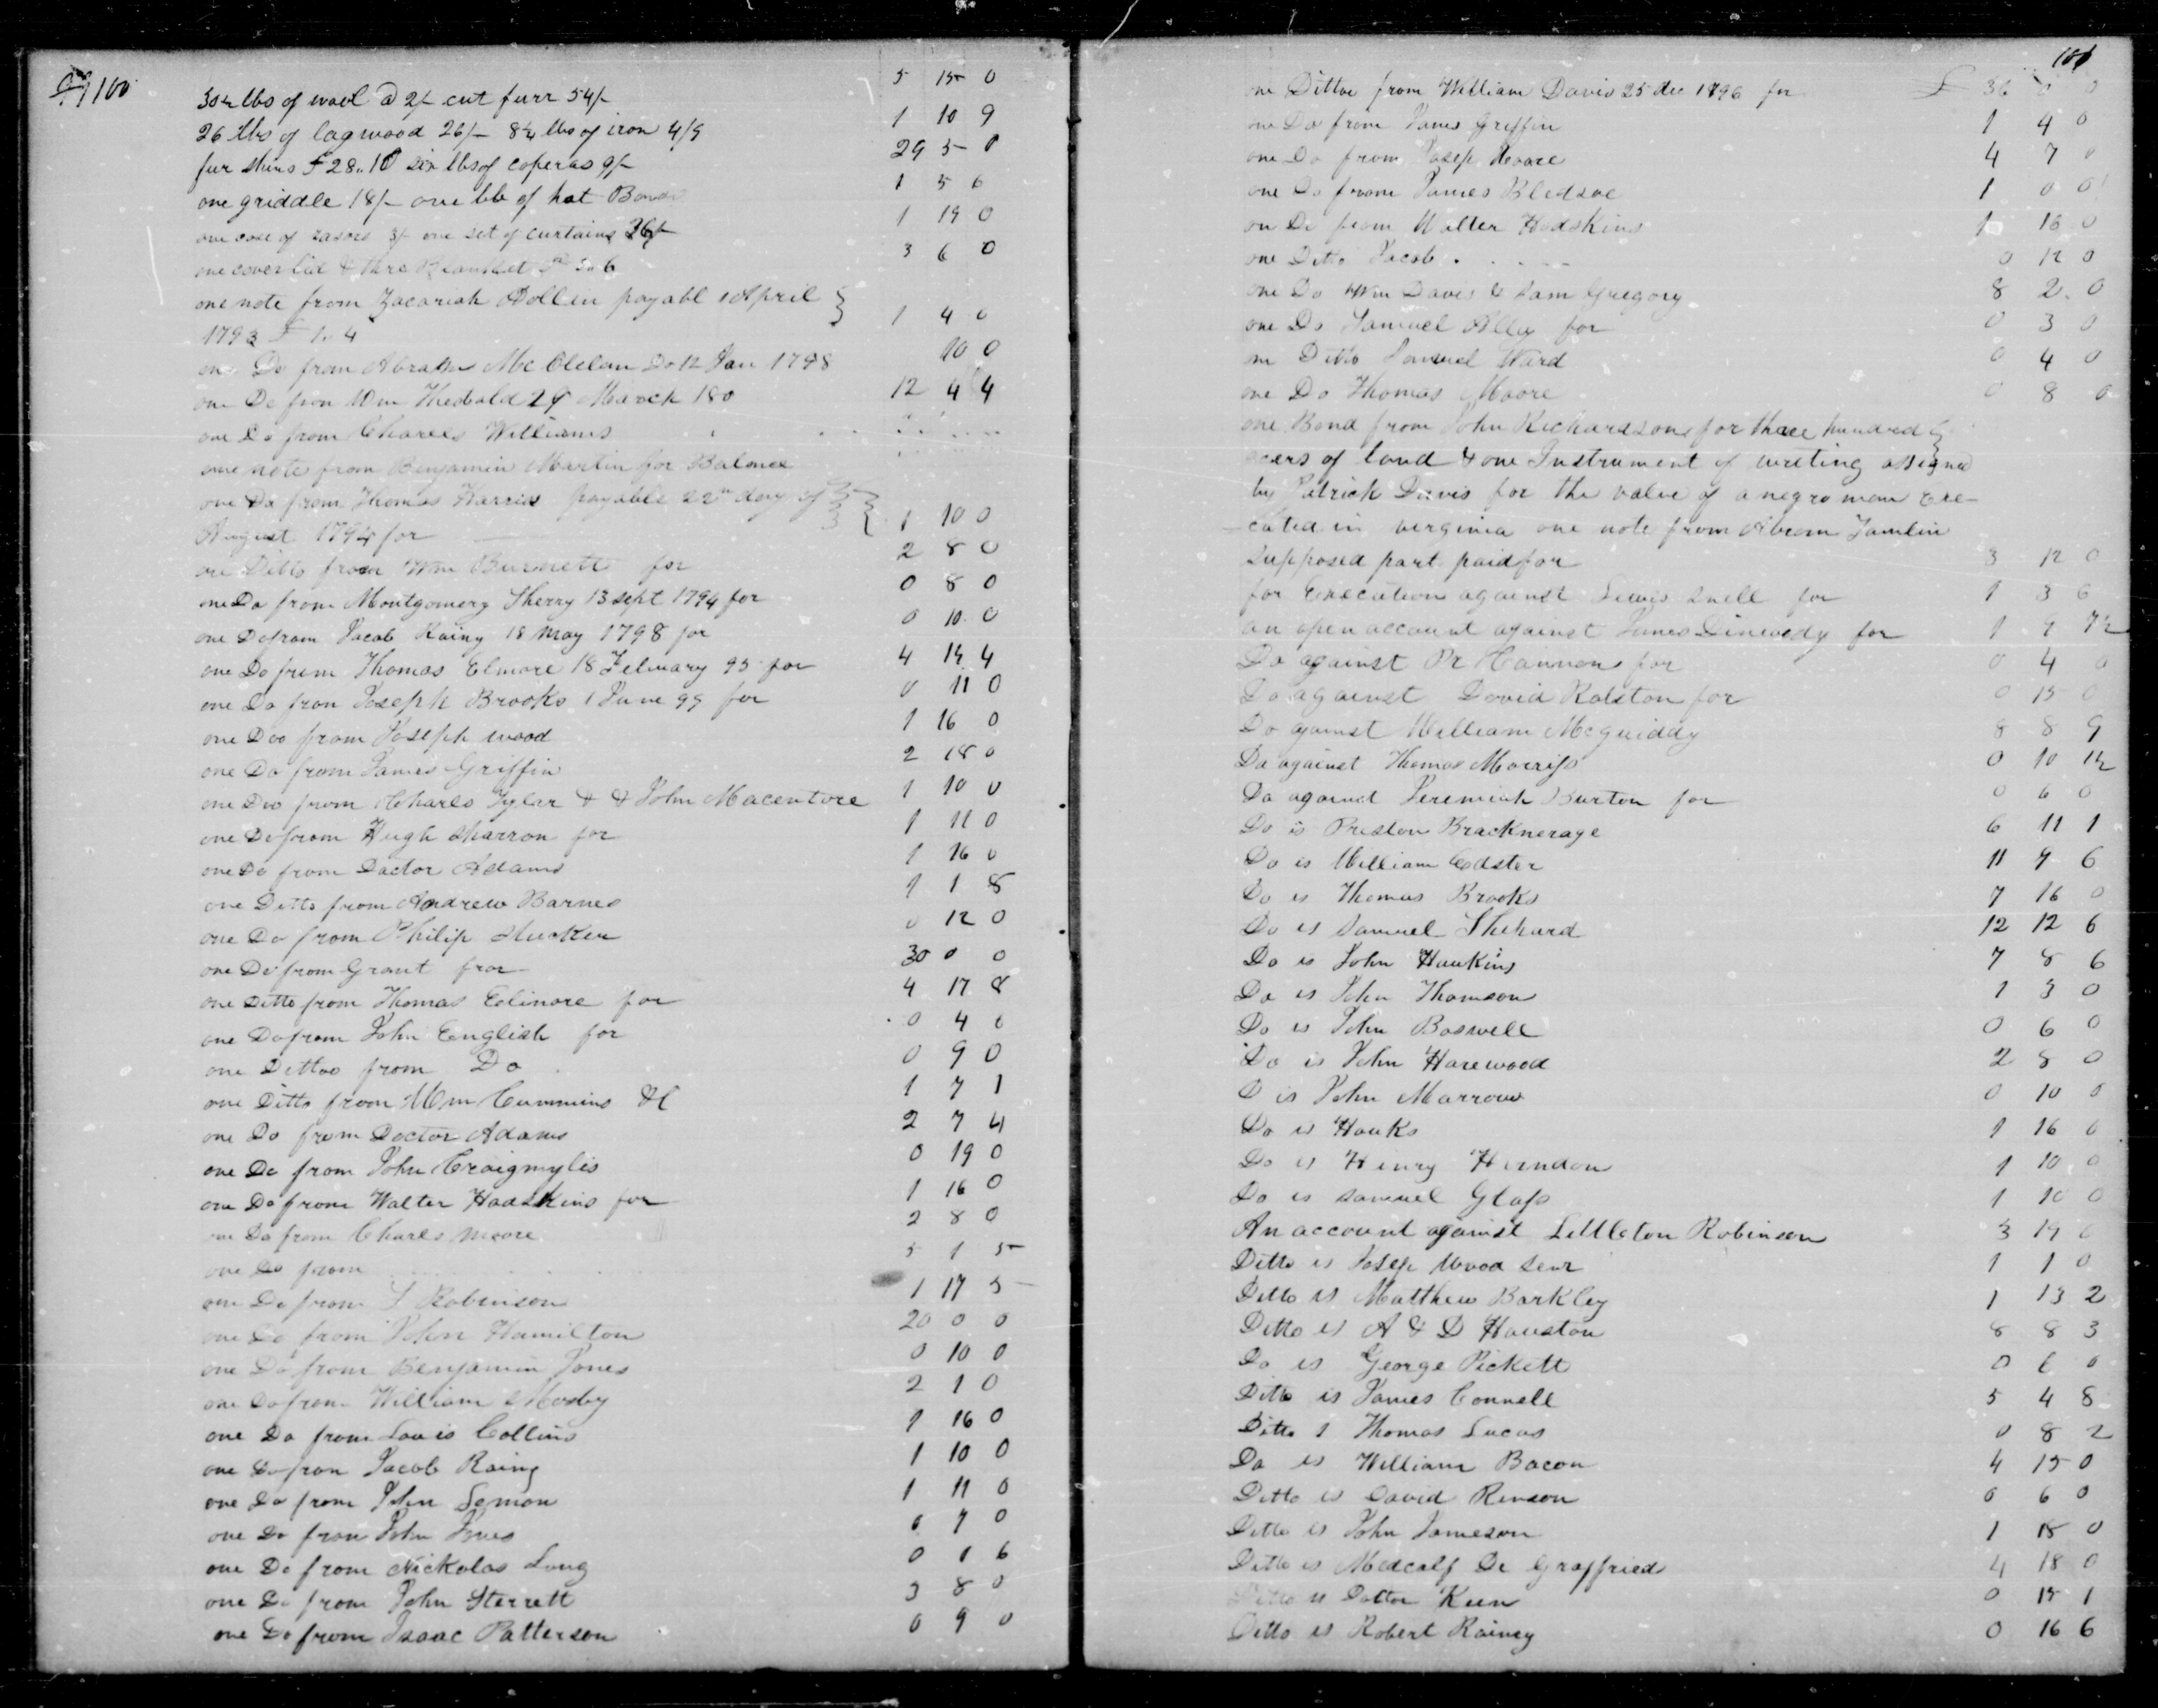 100
30½ lbs of wool @ 2/- cut furr 54/- 5 15 0
26 lbs of lagwood 26/- 8¼ lbs of iron 4/9 1 10 9
fur skins £28.10 six lbs of coperas 9/- 29 5 0
one griddle 18/- one lb of hat 1 5 6
one case of rasors 3/- one set of curtains 36/- 1 19 0
one coverlid & thre Blanket 3 6 0
one note from Zacariah Hollin payabl 1 April
1793 £ 1. 4 1 4 0
one Do from Abraham Mc Clelan Do 12 Jan 1798 10 0
one Do from Wm Thedbald 29 March 180 12 4 4
one Do from Charles Williams
one note from Benjamin Martin for Balance
one Do from Thomas Harris payable 22nd day of
August 1794 for 1 10 0
one Ditto from Wm Burnett for 2 8 0
one Do from Montgomery Sherry 13 sept 1794 for 0 8 0
one Do from Jacob Rainy 18 May 1798 for 0 10 0
one Do from Thomas Elmore 18 Feluary 95 for 4 14 4
one Do from Joseph Brooks 1 June 99 for 0 11 0
one Doo from Joseph wood 1 16 0
one Do from James Griffin 2 18 0
one Doo from Charles Tylar & & John Macentore 1 10 0
one Do from Hugh sharron for 1 11 0
one Do from Doctor Adams 1 16 0
one Ditto from Andrew Barnes 1 1 8
one Do from Philip 0 12 0
one Do from Grant fror 30 0 0
one Ditto from Thomas Eelinore for 4 17 8
one Do from John English for 0 4 6
one Dittoo from Do 0 9 0
one Ditto from Wm Cummins &C 1 7 1
one Do from Doctor Adams 2 7 4
one Do from John Craigmylis 0 19 0
one Do from Walter Hadskins for 1 16 0
one Do from Charls Moore 2 8 0
one Do from 5 1 5
one Do from S Robinson 1 17 5
one Do from John Hamilton 20 0 0
one Do from Benjamin Jones 0 10 0
one Do from William Mosby 2 1 0
one Do from Louis Collins 1 16 0
one Do from Jacob Rainy 1 10 0
one Do from John Lemon 1 11 0
one Do from John Jones 0 7 0
one Do from Nickolas Long 0 1 6
one Do from John Sterrett 3 8 0
one Do from Isaac Patterson 0 9 0
101
one Dittoe from William Davis 25 dec 1796 for £ 36 0 0
one Do from James Griffin 1 4 0
one Do from Josep Hoare 4 7 0
one Do from James Bledsoe 1 0 0
on Do from Walter Hodskins 1 16 0
one Ditto Jacob . . . . 0 12 0
one Do Wm Davis & Sam Gregory 8 2 0
one Do Samuel Alley for 0 3 0
on Ditto Samuel Ward 0 4 0
one Do Thomas Moore 0 8 0
one Bond from John Richardson for three hundred
acers of land & one Instrument of writing assigned
by Patrick Davis for the value of a negro man Exe-
cuted in virginia one note from Abrom Tamlin
supposed part paid for 3 12 0
for Execution against Lewis Snell for 1 3 6
an open account against James Dinwody for 1 9 7½
Do against Pr Hannon for 0 4 0
Do against David Ralston for 0 15 0
Do against William Mcguiddy 8 8 9
Do against Thomas Morriss 0 10 1½
Do against Jeremiah Burton for 0 6 0
Do is Preston Bracknerage 6 11 1
Do is William Edster 11 9 6
Do is Thomas Brooks 7 16 0
Do is Samuel Shehard 12 12 6
Do is John Hawkins 7 8 6
Do is John Thomson 1 3 0
Do is John Boswell 0 6 0
Do is John Harewood 2 8 0
D is John Marrow 0 10 0
Do is Hawks 1 16 0
Do is Henry Herndon 1 10 0
Do is samuel Glass 1 10 0
An account against Settleton Robinson 3 19 6
Ditto is Josep Wood senr 1 1 0
Ditto is Matthew Barkley 1 13 2
Ditto is A & D Houston 8 8 3
Do is George Pickett 0 6 0
Ditto is James Connell 5 4 8
Ditto I Thomas Lucas 0 8 2
Do is William Bacon 4 15 0
Ditto is David Renson 0 6 0
Ditto is John Jameson 1 18 0
Ditto is Medcalf De Graffried 4 18 0
Ditto is Dottor Keen 0 15 1
Ditto is Robert Rainey 0 16 6